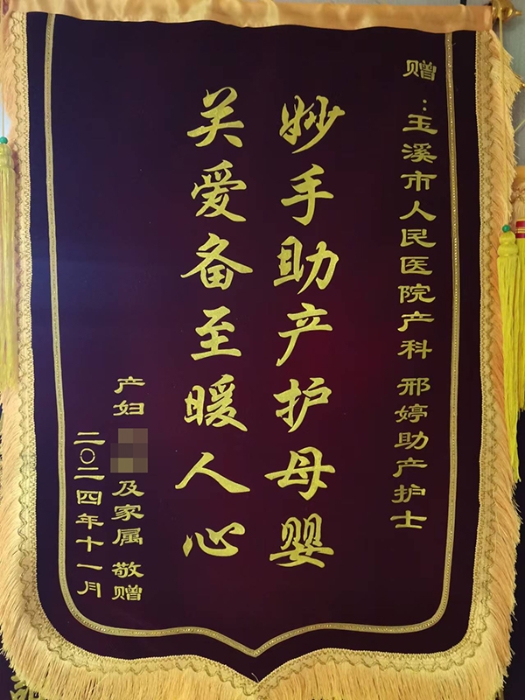 赠：玉溪市人民医院产科 邢婷助产护士
妙手助产护母婴
关爱备至暖人心
产妇 及家属 敬赠
二〇二四年十一月